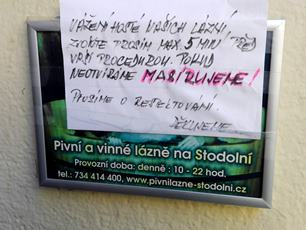 VÁŽENÍ HOSTÉ NAŠICH LÁZNÍ
ZVOŇTE PROSÍM MAX. 5 MIN PŘED
VAŠÍ PROCEDUROU. POKUD
NEOTVÍRÁME MASÍRUJEME!
PROSÍME O RESPEKTOVÁNÍ.
DĚKUJEME
Pivní a vinné lázně na Stodolní
Provozní doba: denně : 10 - 22 hod.
tel.: 734 414 400, www.pivnilazne-stodolni.cz